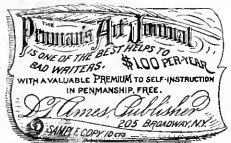 THE
Penman's Art Journal
IS ONE OF THE BEST HELPS TO
BAD WRITERS. $1.00 PER YEAR
WITH A VALUABLE PREMIUM TO SELF-INSTRUCTION
IN PENMANSHIP, FREE.
D.T. Ames, Publisher
205 BROADWAY, N.Y.
SAMPLE COPY 10 CTS